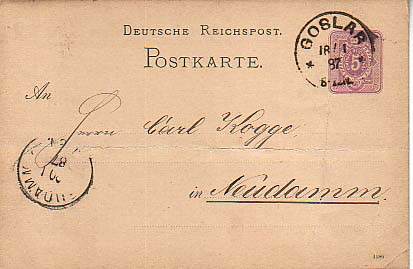 DEUTSCHE REICHSPOST.
POSTKARTE.
GOSLAR
18 1
87
5
An
Herrn Carl Kogge
in Neudamm
NEUDAMM
87